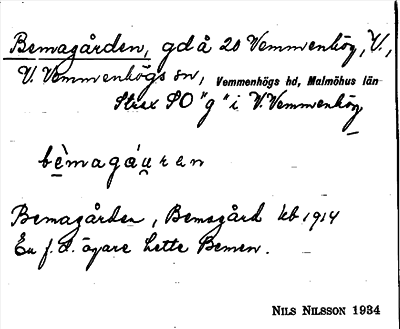 Bemagården, gd å 20 Vemmenhög, V.,
V. Vemmenhögs sn, Vemmenhögs hd, Malmöhus län
Strax SO "g" i V. Vemmenhög
bèmagáu̯ran
Bemagården, Bemagård kb 1914
En f.d. ägare hette Bemen.
NILS NILSSON 1934